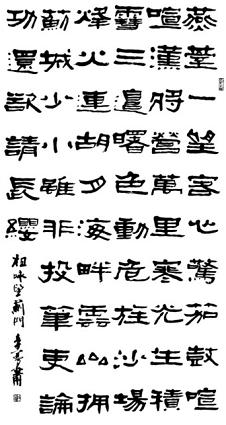 燕臺一望客心驚笳鼓喧
喧漢將營萬里寒光生積
雪三邊曙色動危旌沙場
烽火連胡月海畔雲山擁
薊城少小雖非投筆吏論
功還欲請長纓
祖咏望薊門